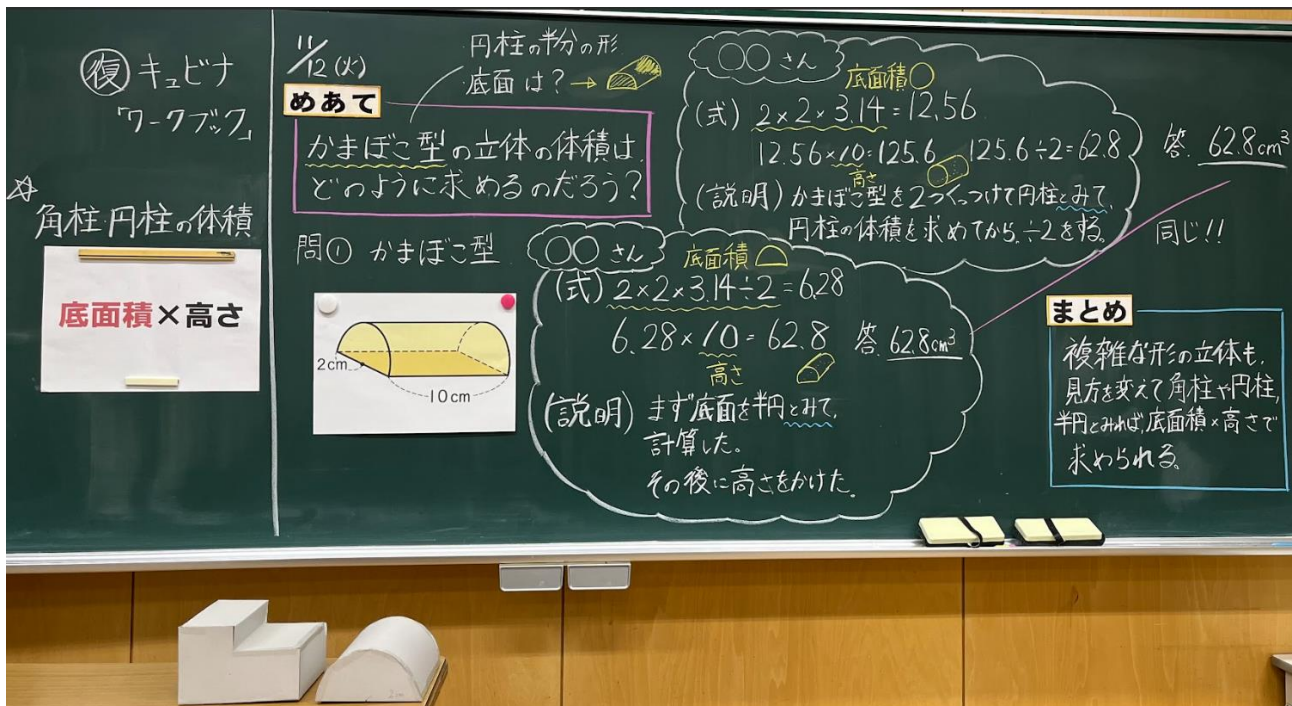 復 キュビナ
「ワークブック」
☆
角柱・円柱の体積
底面積×高さ
11/12(火)
円柱の半分の形
底面は?→
めあて
かまぼこ型の立体の体積は、
どのように求めるのだろう?
問① かまぼこ型
2cm
10cm
○○さん
底面積○
(式) 2×2×3.14=12.56
12.56×10=125.6 125.6÷2=62.8
高さ
(説明) かまぼこ型を2つくっつけて円柱とみて、
円柱の体積を求めてから、÷2をする。
答. 62.8cm³
同じ!!
○○さん
底面積
(式) 2×2×3.14÷2=6.28
6.28×10=62.8 答. 62.8cm³
高さ
(説明) まず底面を半円とみて、
計算した。
その後に高さをかけた。
まとめ
複雑な形の立体も、
見方を変えて角柱や円柱,
半円とみれば、底面積×高さで
求められる。